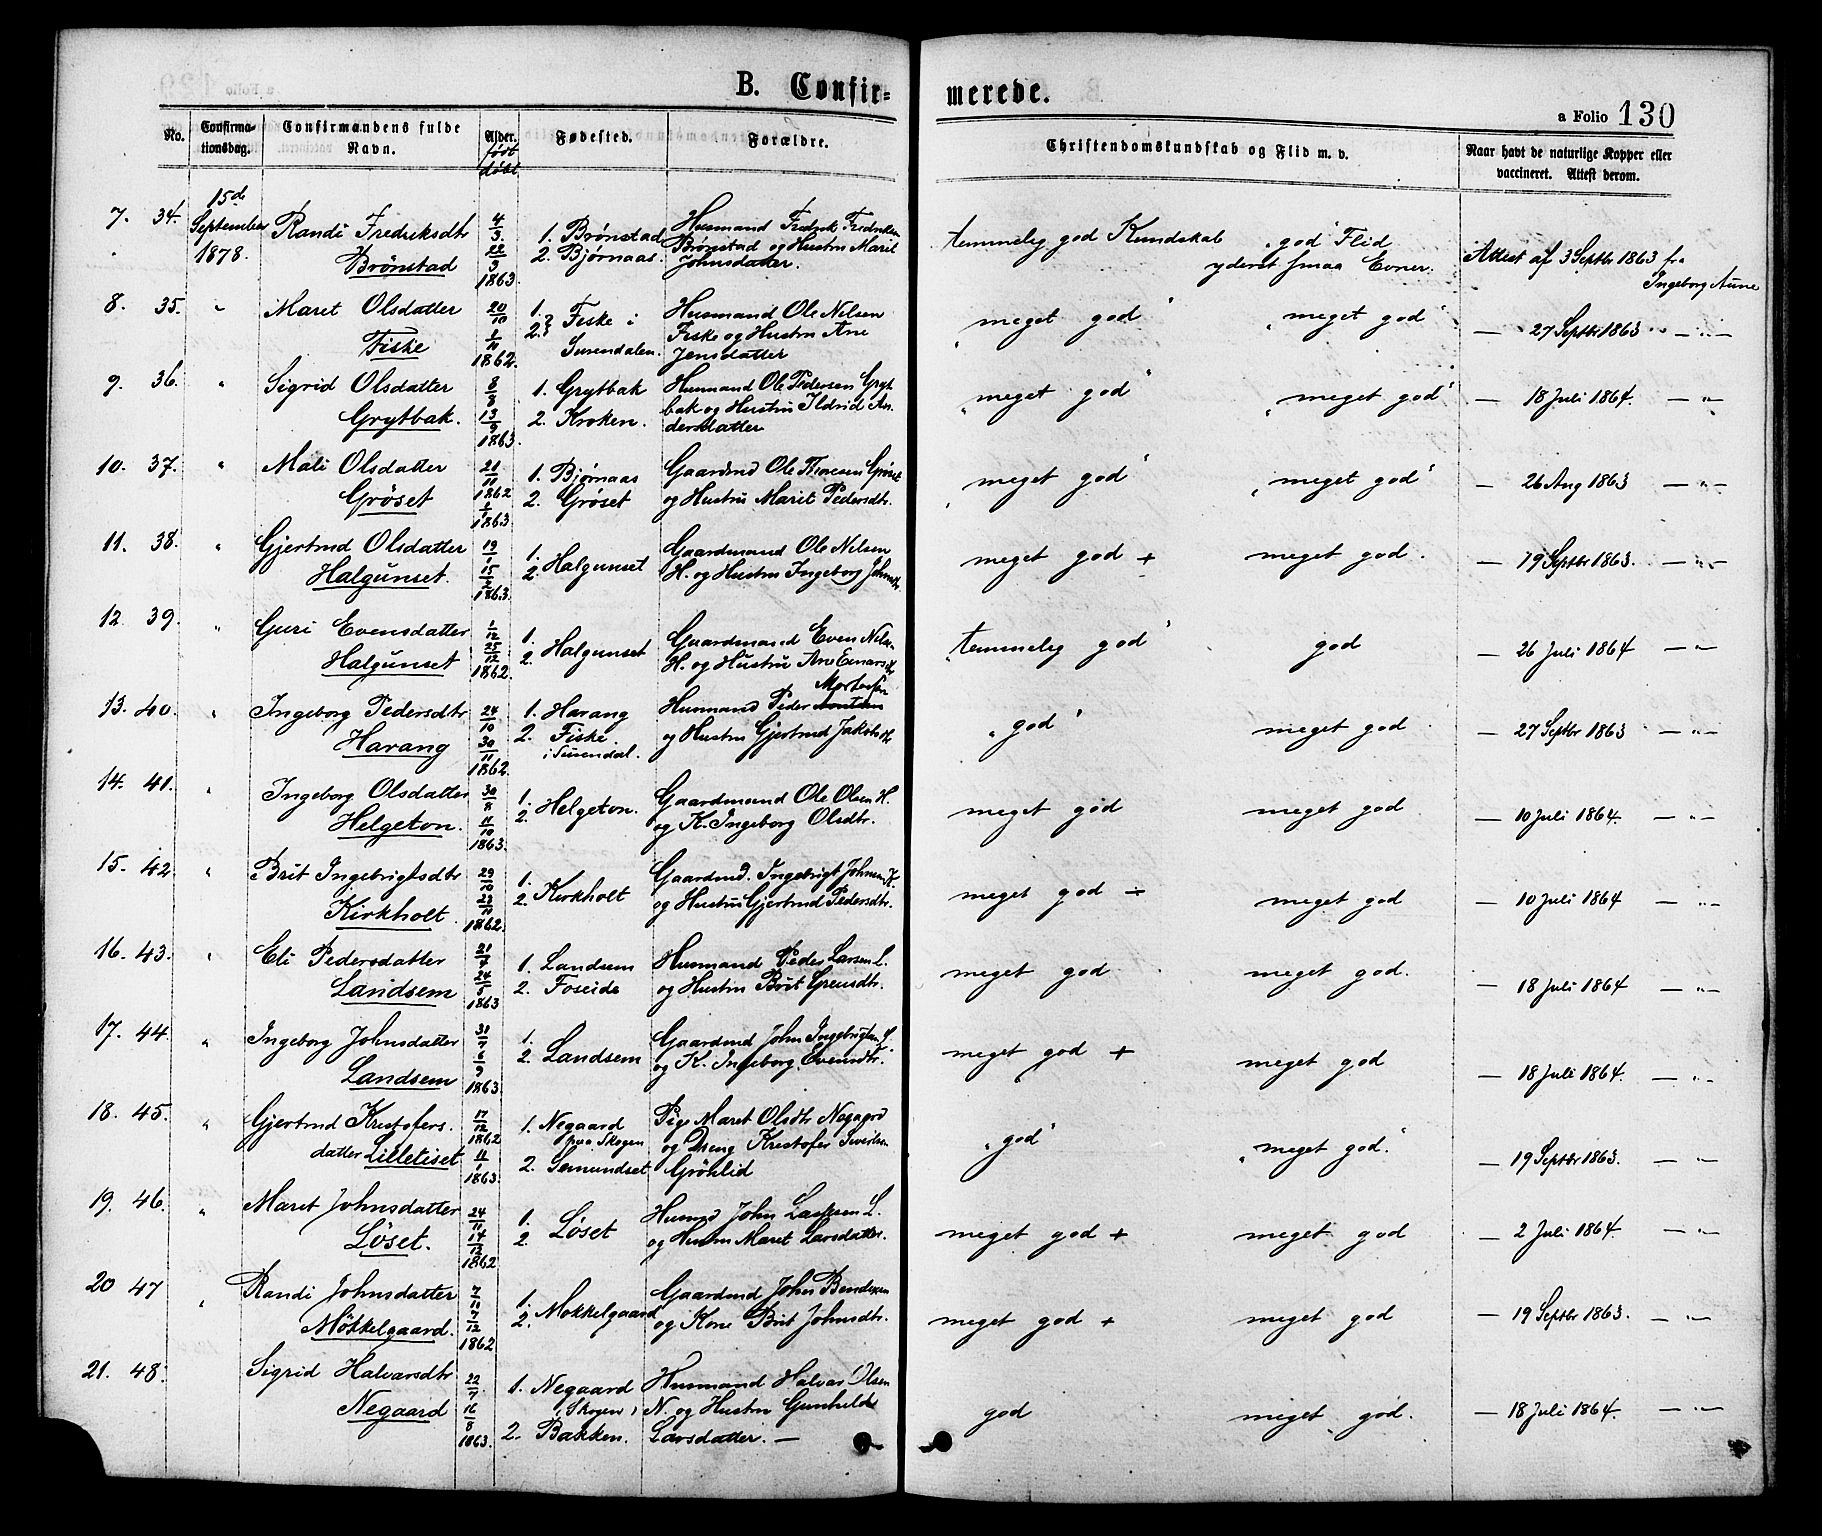 B. Confirmerede.
a Folio 130
No. Confirmationsdag. Confirmandens fulde Navn. Alder. født døbt Fødested. Forældre. Christendomskundskab og Flid m. v. Naar havt de naturlige Kopper eller vaccineret. Attest derom.
15de
7. 34. September Randi Fredriksdtr 4/3 1. Brönstad Husmand Fredrik Fredriksen temmelig god Kundskab "god" Flid Attest af 3 Septbr 1863 fra
1878. Brönstad 22/3 1863. 2. Bjørnaas. Brönstad og Hustru Marit Johnsdatter. yderst smaa Evner. Ingeborg Aune
8. 35. " Maret Olsdatter 20/10 1. Fiske i Husmand Ole Nilsen "meget god" "meget god" — 27 Septbr 1863 — " —
Fiske 1/10 1862. 2. Surendalen. Fiske og Hustru Ane Jensdatter
9. 36. " Sigrid Olsdatter 8/8 1. Grytbak Husmand Ole Pedersen Gryt "meget god" "meget god" — 18 Juli 1864. — " —
Grytbak. 13/9 1863. 2. Kroken. bak og Hustru Ildrid An- dersdatter
10. 37. " Mali Olsdatter 21/11 1862 1. Bjørnaas Gaardmd Ole Thoresen Gröset "meget god" "meget god" — 26 Aug 1863 — " —
Gröset 1/1 1863 2. Gröset og Hustru Marit Pedersdtr.
11. 38. " Gjertrud Olsdatter 19/1 1. Halgunset Gaardmand Ole Nilsen meget god + meget god. — 19 Septbr 1863. — " —
Halgunset. 15/2 1863. 2. H. og Hustru Ingeborg Johnsdtr
12. 39. " Guri Evensdatter 1/12 1. Halgunset Gaardmand Even Nils. "temmelig god" god — 26 Juli 1864 — " —
Halgunset 25/12 1862. 2. H. og Hustru Ane Einarsdtr
Mortensen
13. 40. " Ingeborg Pedersdtr 24/10 1. Harang Husmand Peder "god" meget god — 27 Septbr 1863 — " —
Harang 30/11 1862. 2. Fiske i Surendal. og Hustru Gjertrud Jakobsdtr
14. 41. " Ingeborg Olsdatter 30/8 1. Helgeton. Gaardmand Ole Olsen H. meget god meget god — 10 Juli 1864. — " —
Helgeton. 11/10 1863. 2. og K. Ingeborg Olsdtr.
15. 42 " Brit Ingebrigtsdtr 29/10 1. Kirkholt Gaardmd. Ingebrigt Johnsen K. meget god ÷ meget god — 10 Juli 1864 — " —
Kirkholt 1862. 2. og Hustru Gjertrud Pedersdtr.
16. 43. " Eli Pedersdatter 21/4 1. Landsem Husmand Peder Larsen L. meget god meget god. — 18 Juli 1864 — " —
Landsem 24/5 1863 2. Foseide og Hustru Brit Grensdtr.
17. 44. " Ingeborg Johnsdatter 31/7 1. Landsem Gaardmd John Ingebrigtsen L. meget god + meget god — 18 Juli 1864. — " —
Landsem 6/9 1863. 2. og K. Ingeborg Evensdtr.
18. 45. " Gjertrud Kristofers- 17/12 1862 1. Negaard Pige Maret Olsdtr Negagrd "god" "meget god." — 19 Septbr 1863. — " —
datter Lilletiset 11/1 1863. paa Skogen og Dreng Kristofer Siverts.
2. Semundset Grönlid
19. 46. " Maret Johnsdatter 24/11 1. Löset Husmd John Larsen L. meget god + meget god — 2 Juli 1864. — " —
Löset. 14/12 1862 2. og Hustru Maret Larsdatter.
20 47 " Randi Johnsdatter 7/11 1. Mokkelgaard Gaardmd John Bendixen meget god + meget god — 19 Septbr 1863. — " —
Mökkelgaard. 7/12 1862 2. og Kone Brit Johnsdtr.
21. 48. Sigrid Halvarsdtr 22/7 1. Negaard Husmand Halvar Olsen god meget god. — 18 Juli 1864. — " —
Negaard 16/8 1863. (Skogen) N. og Hustru Gunhild
2. Bakken. Larsdatter. —